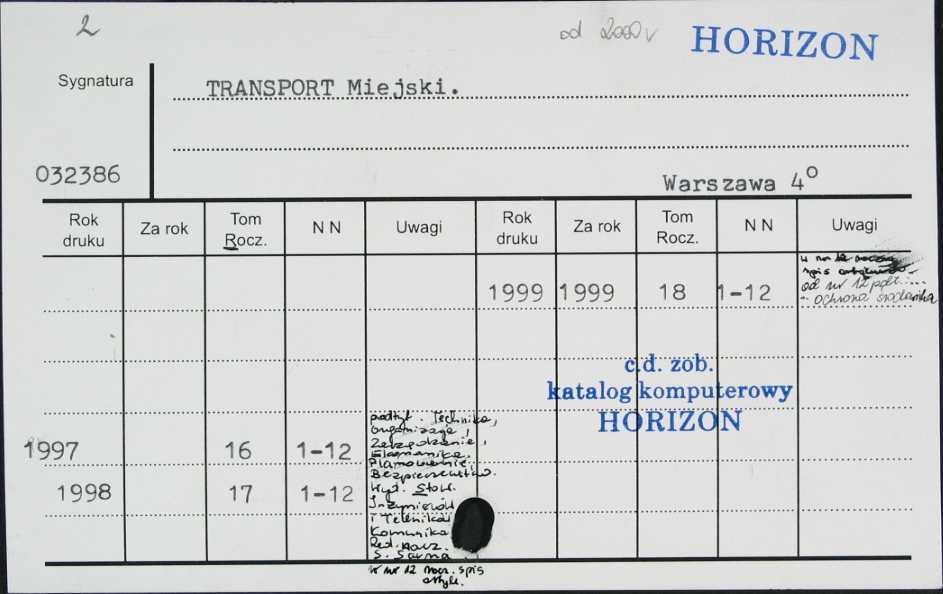 2
od 2000 r
HORIZON
Sygnatura
TRANSPORT Miejski.
032386
Warszawa 4°
Rok druku Za rok Tom Rocz. N N Uwagi Rok druku Za rok Tom Rocz. N N Uwagi
1999 1999 18 1-12
w nr 12
spis
od nr 12 podt. ...
ochrona środowiska
c.d. zob.
katalog komputerowy
HORIZON
1997 16 1-12
podtyt. Technika,
organizacja,
Zarządzanie,
Ekonomika.
Planowanie,
Bezpieczeństwo.
Wyd. Stow.
Inżynierów
i Techników
Komunika
Red. nacz.
S. Sarna
1998 17 1-12
w nr 12 rocz. spis
artyk.